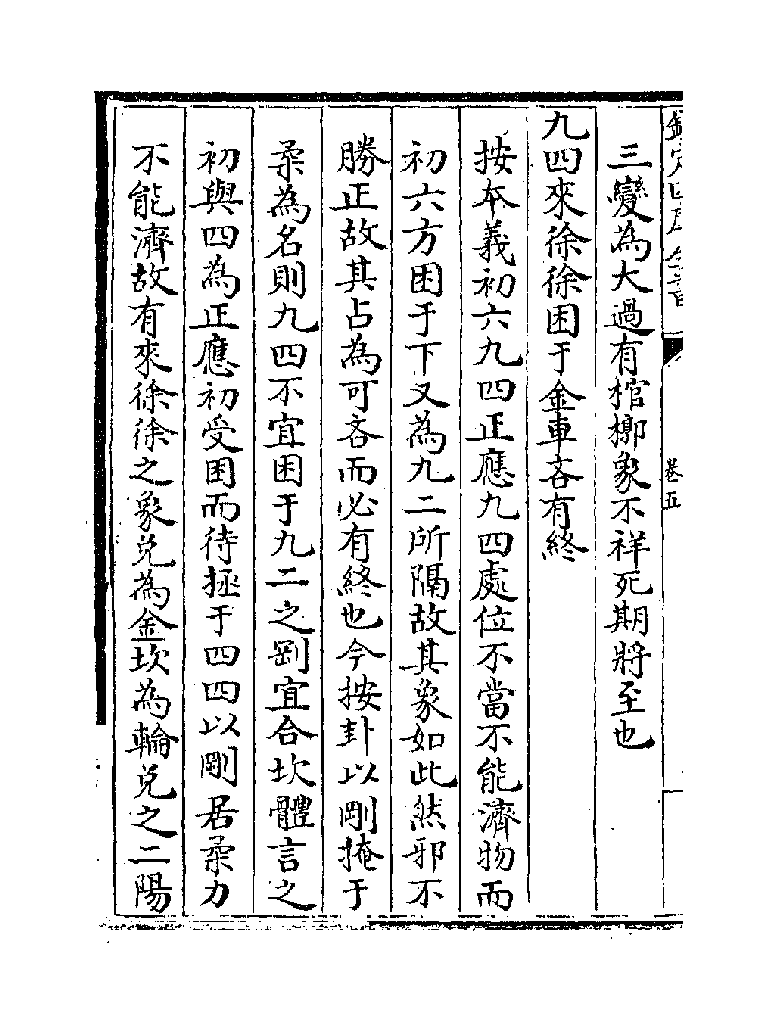 欽定四庫全書
卷五
三變為大過有棺槨象不祥死期將至也
九四來徐徐困于金車吝有終
按本義初六九四正應九四處位不當不能濟物而
初六方困于下又為九二所隔故其象如此然邪不
勝正故其占為可吝而必有終也今按卦以剛掩于
柔為名則九四不宜困于九二之剛宜合坎體言之
初與四為正應初受困而待拯于四四以剛居柔力
不能濟故有來徐徐之象兌為金坎為輪兌之二陽